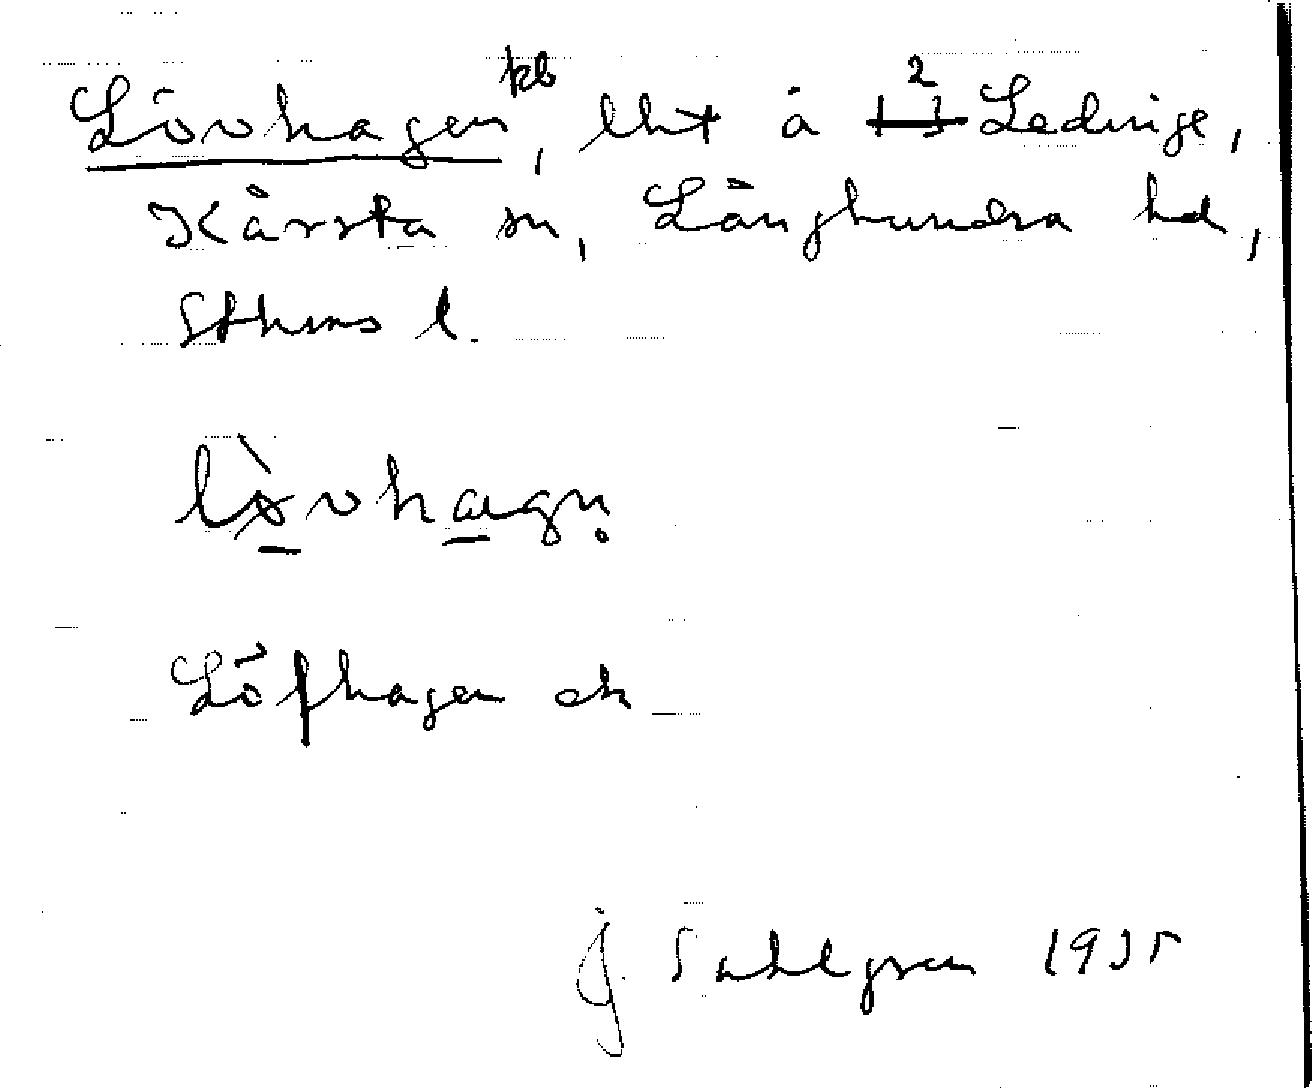 Lövhagen kb, lht å 2 Ledinge,
Kårsta sn, Långhundra hd,
Sthms l.
lø̀vhagn̥
Löfhagen ek
J. Sahlgren 1935